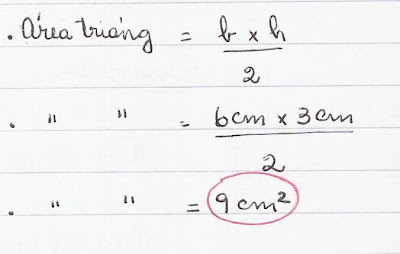 . Área triáng = b x h
2
. " " = 6cm x 3cm
2
. " " = 9 cm²